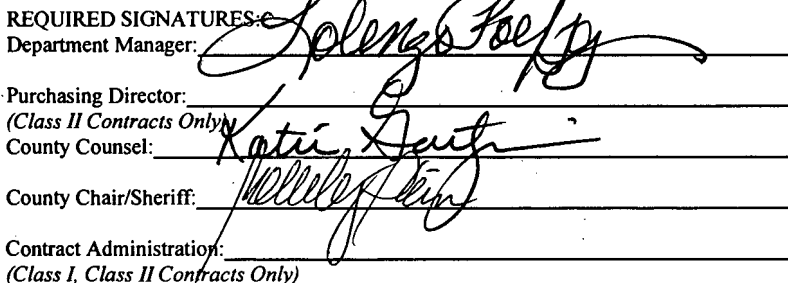 REQUIRED SIGNATURES:
Department Manager: Lolenzo Poe
Purchasing Director:
(Class II Contracts Only)
County Counsel: Katie
County Chair/Sheriff:
Contract Administration:
(Class I, Class II Contracts Only)